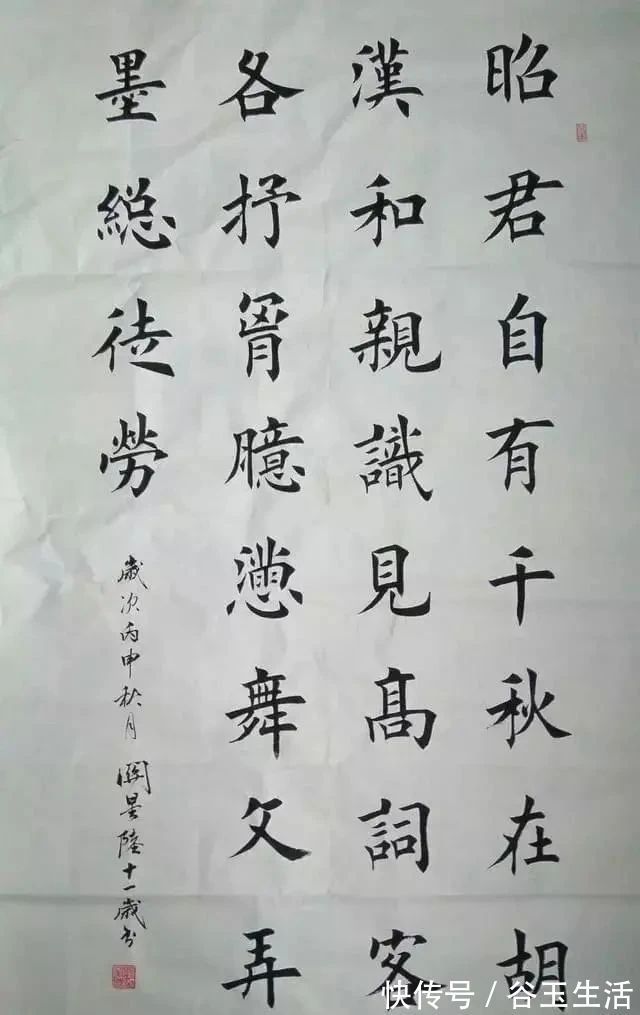 昭君自有千秋在胡
漢和親識見高詞客
各抒胷臆懣舞文弄
墨総徒勞
歲次丙申秋月 關 陸十一歲书
快传号/谷玉生活